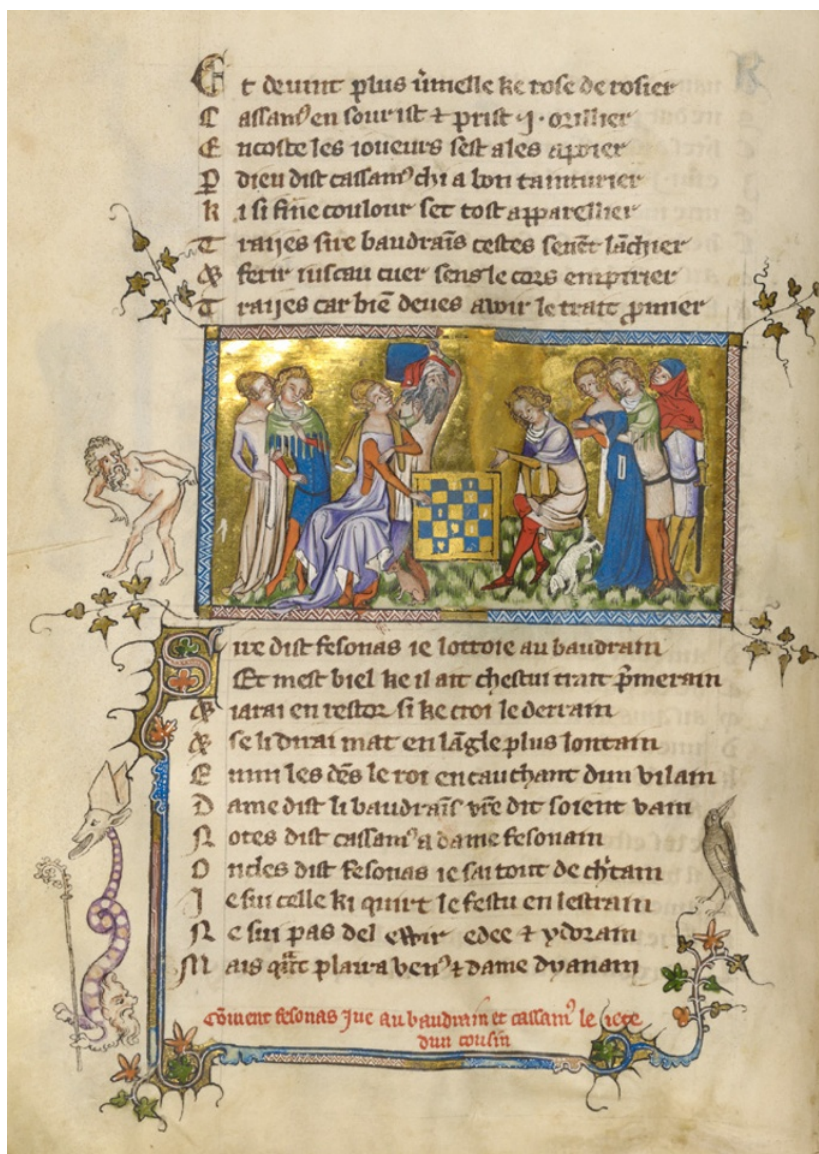 Et devint plus v̓melle ke rose de rosier
Cassan᷒ en sourist ⁊ prist ·j· orillier
Encoste les joueurs sest ales apoier
P dieu dist cassam᷒ chi a bon tainturier
Ki si fine coulour set tost apparellier
Traijes sire baudrai̅s cestes sevēt lācħier
⁊ ferir iuscau cuer sens le cors empirier
Traijes car biē deves avoir le trait p̓mier
Sire dist fesonas ie lottroie au baudrain
Et mest biel ke il ait chestui trait p̓merain
⁊ iarai en restor si ke croi le derrain
⁊ se li dirai mat en lāgle plus lontain
Enmi les dēs le roi en cauchant dun vilain
Dame dist li baudrai̅s vr̅e dit soient vain
Notes dist cassam᷒ a dame fesonain
Oncles dist fesonas ie sai tout de ch̓tain
Je sui celle ki quirt le festu en lestrain
Ne sui pas del edee ⁊ ydorain
Mais q̄t plaira ven᷒ ⁊ dame dyanain
cōment fesonas Jue au baudrain et cassam᷒ le iete
dun cousin